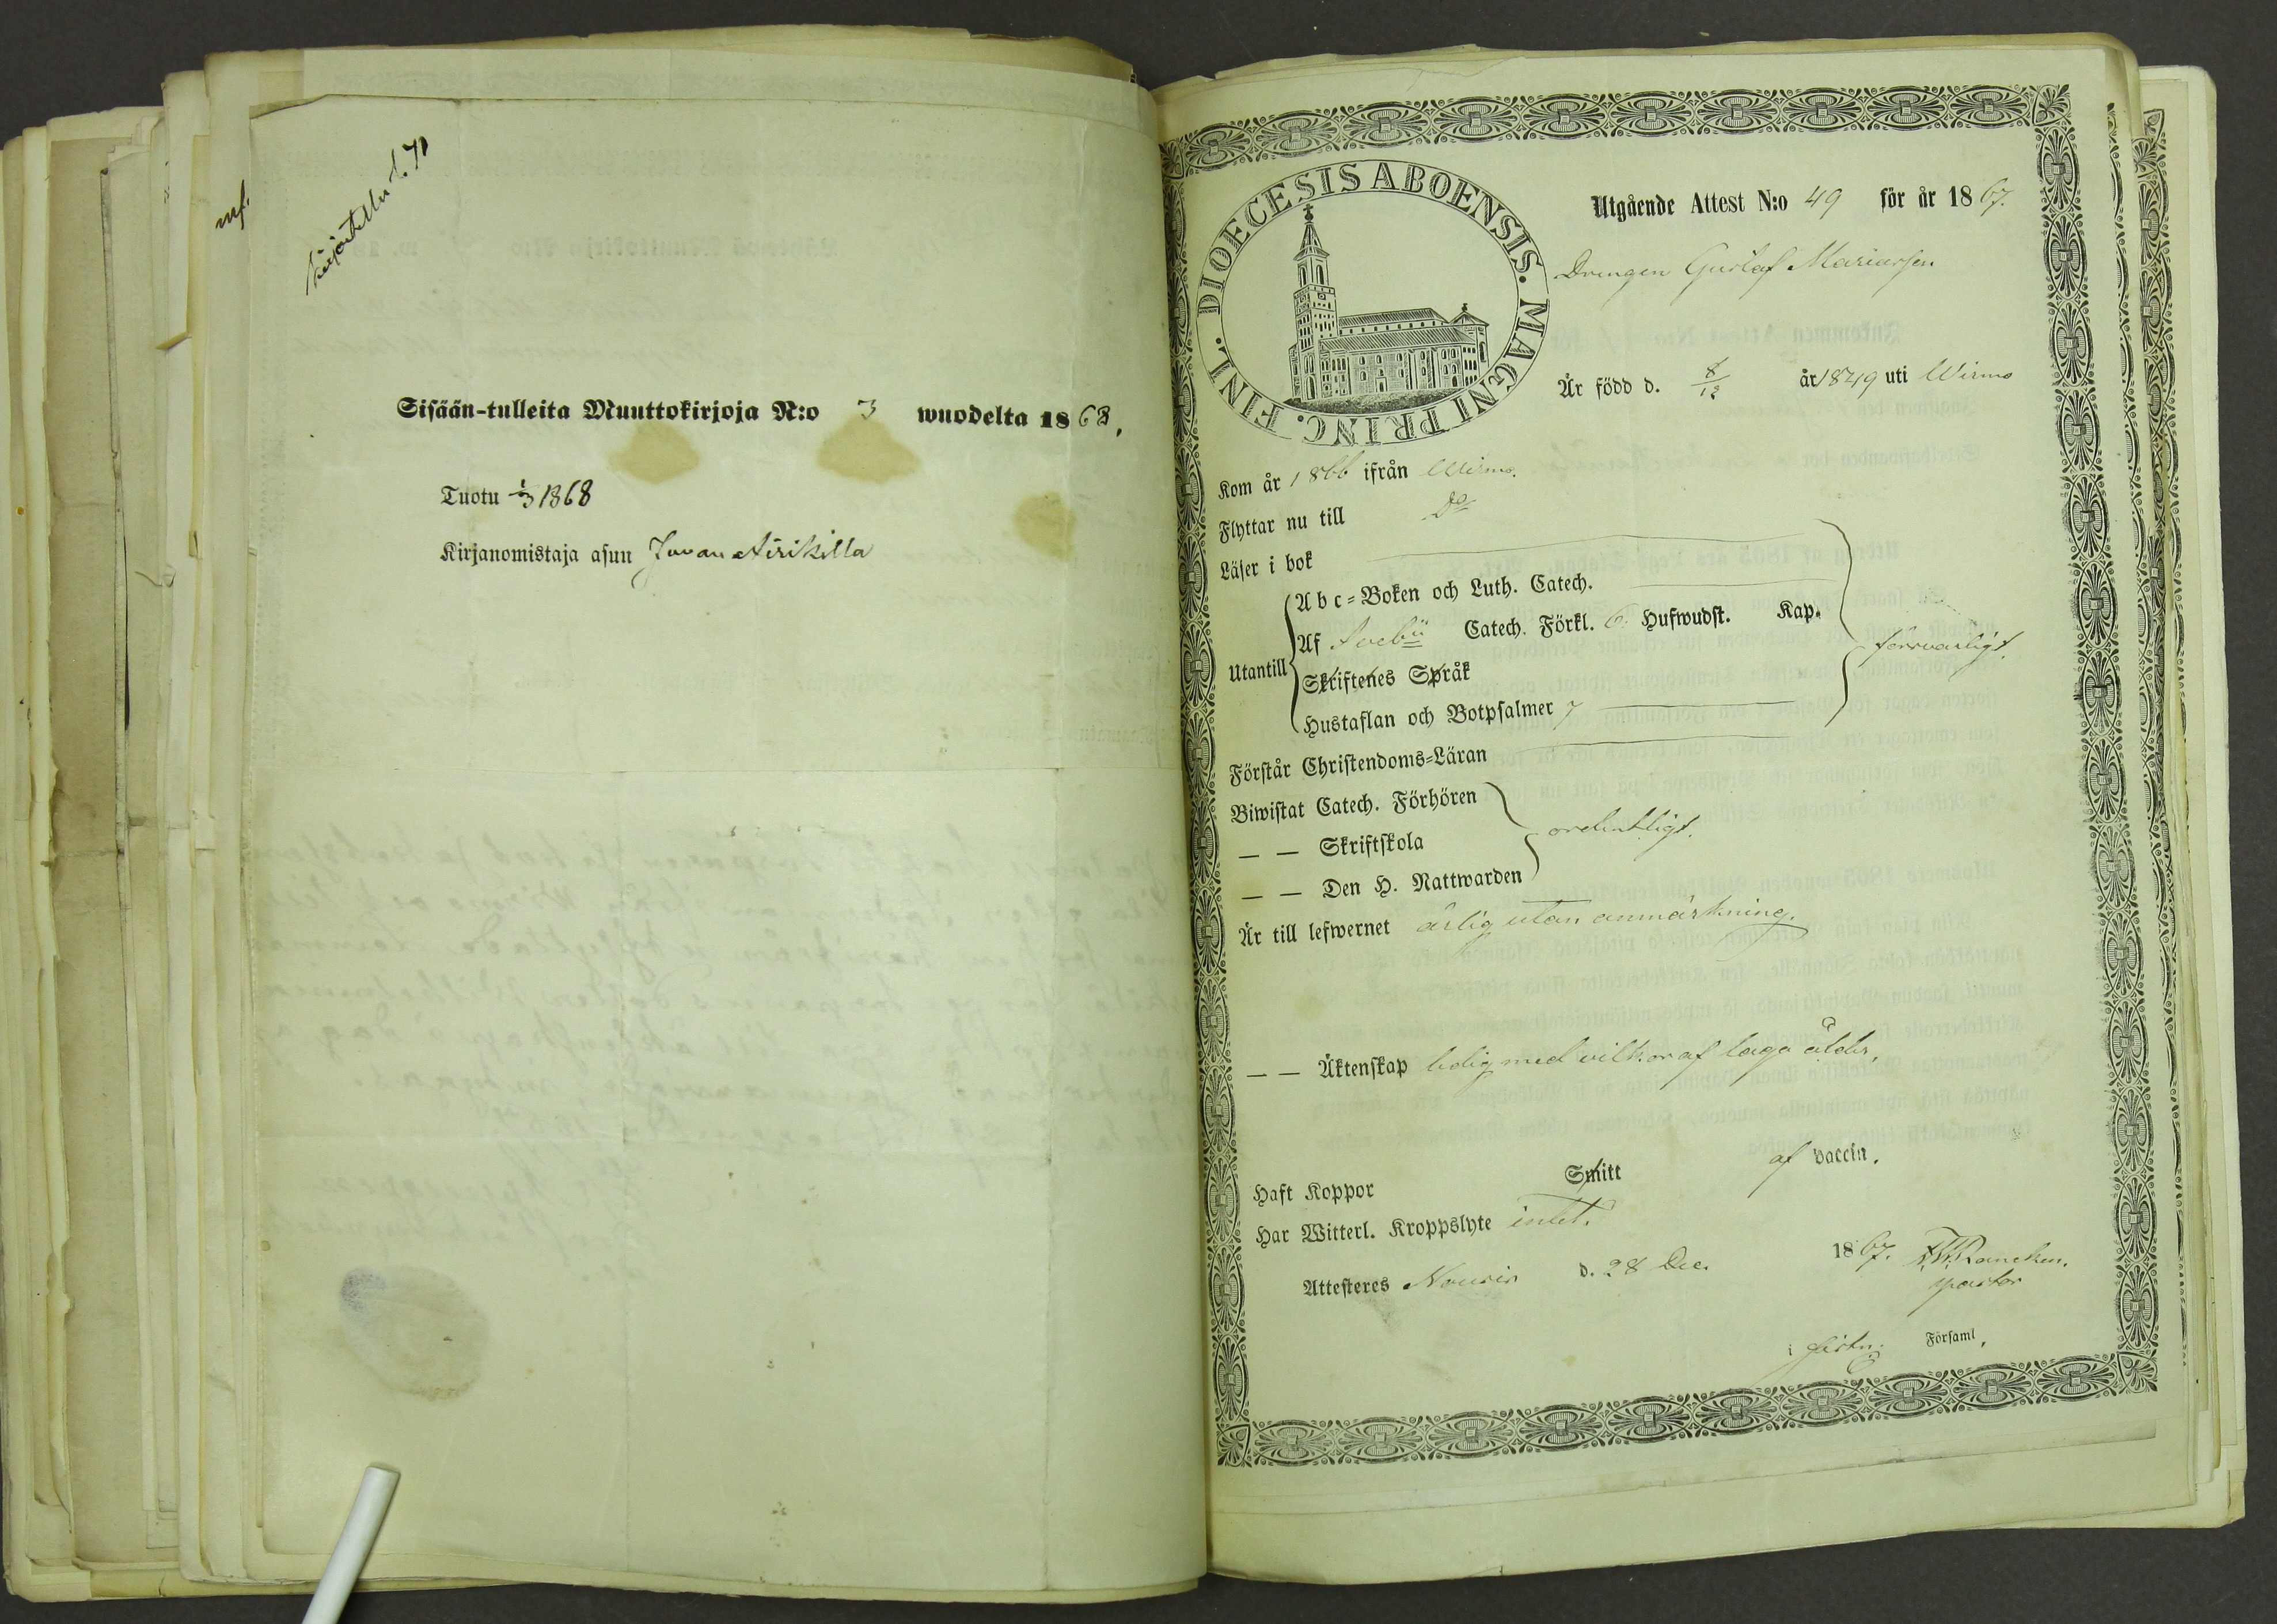 Sisään-tulleita Muuttokirjoja N:o 3 wuodelta 1868.
Tuotu 1/3 1868
Kirjanomistaja asun Juvan Airikilla
DIOECESIS ABOENSIS. MAGNI PRINC. FINL.
Utgående Attest N:o 49 för år 1867.
Drengen Gustaf Mariasson
Är född d. 8/12 år 1849 uti Wirmo
Kom år 1866 ifrån Wirmo.
Flyttar nu till Do
Läser i bok
Abc-Boken och Luth. Catech.
Utantill
Af Svebii Catech. Förkl. 6 Hufwudst. Kap.
försvarligt.
Skriftenes Språk
Hustaflan och Botpsalmer 7
Förstår Christendoms-Läran
Biwistat Catech. Förhören
— — Skriftskola
ordentligt.
— — Den H. Nattwarden
Är till lefwernet ärlig utan anmärkning.
— — Äktenskap ledig med vilkor af laga ålder.
Haft Koppor Smitt af vaccin.
Har Witterl. Kroppslyte intet.
Attesteres Nousis d. 28 Dec. 1867.
pastor
i Församl.